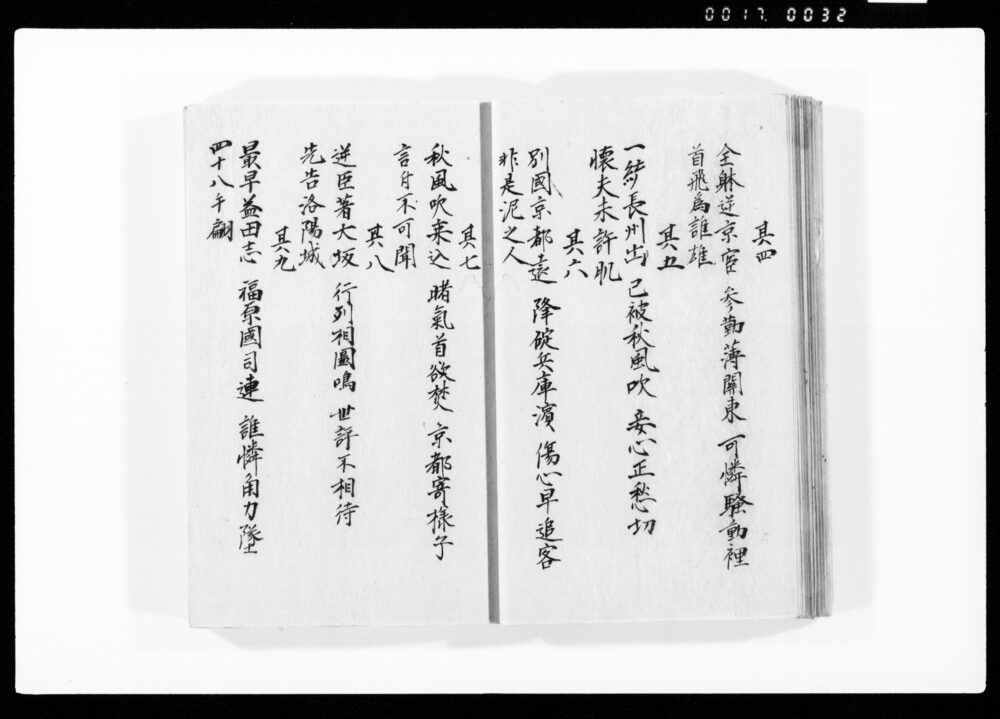 0017. 0032
其四
全躰逆京宦 参勤薄関東 可憐騒動裡
首飛為誰雄
其五
一結長州出 已被秋風吹 妾心正愁切
懐夫未許肌
其六
別國京都遠 降碇兵庫濱 傷心早追客
非是泥之人
其七
秋風吹乗込 睹氣首欲焚 京都寄様子
言自不可聞
其八
逆臣著大坂 行列相圖鳴 世評不相待
先告洛陽城
其九
最早益田志 福原國司連 誰憐角力墜
四十八午翩